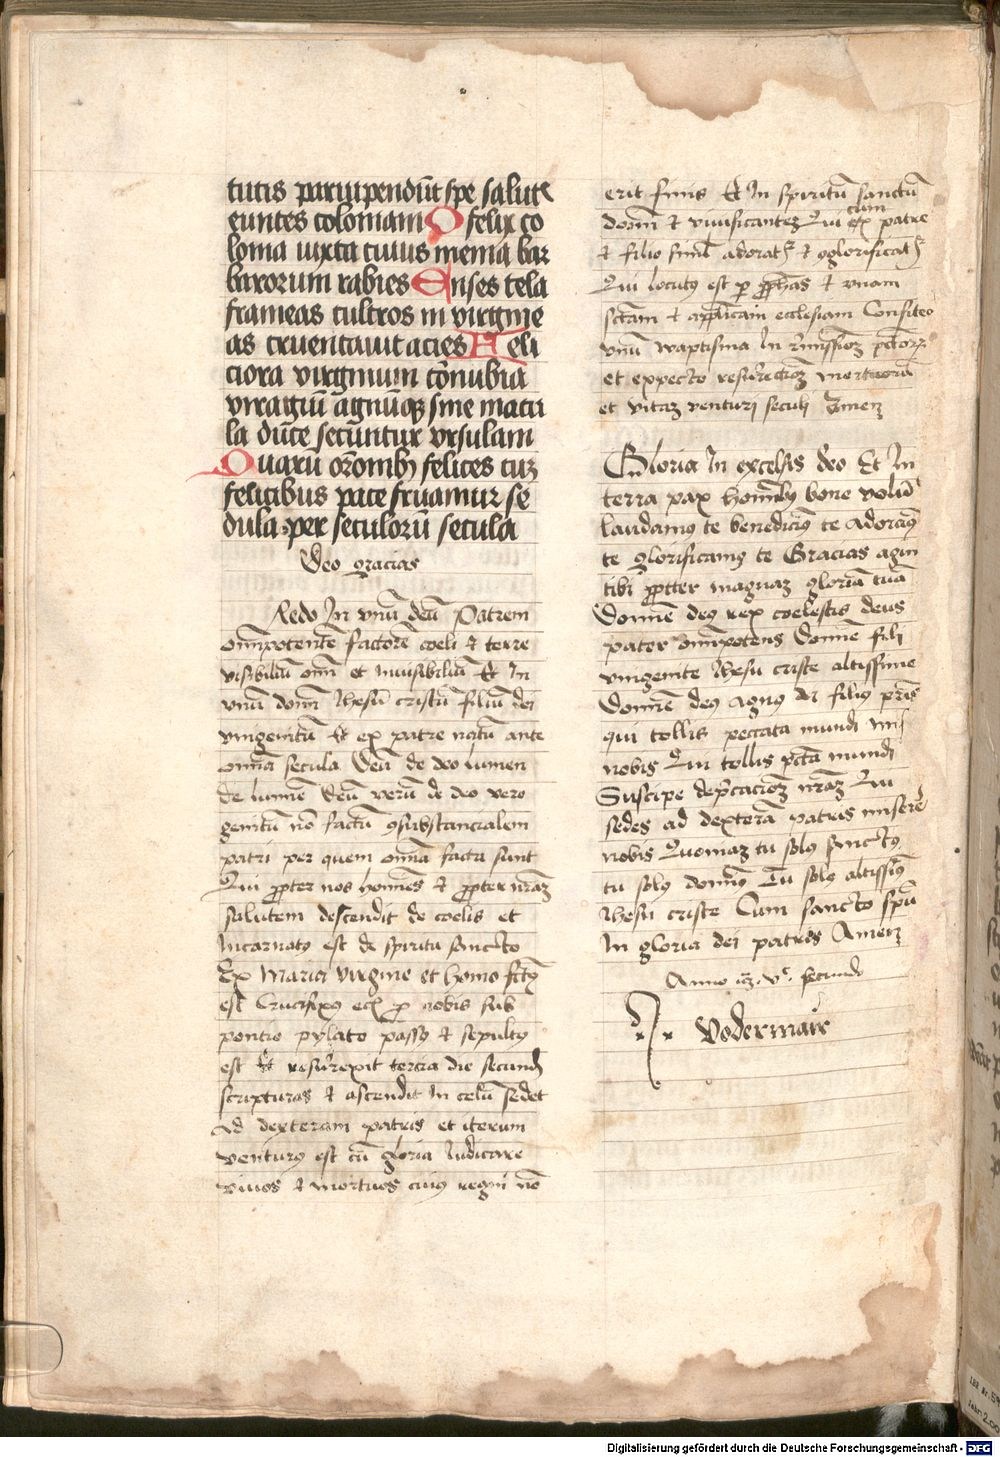 tutis paruipendūt spe salute
euntes coloniam O felix co
lonia iuxta cuius menia bar
barorum rabies Enses tela
frameas cultros in virgine
as cruentauit acies Feli
ciora virginum cōnubia
viraginū agnūqꝫ sine macu
la duce secūntur vrsulam
Quarū oōnibꝫ felices cuꝫ
felicibus pace fruamur se
dula per seculorū secula
Deo gracias
redo In vnū deū Patrem
omīpotentē factorē coeli et terre
visibiliū oīm et inuisibiliū Et In
vnū domī Ihesū cristū filiū dei
vnigenitū Et ex patre natū ante
omīa secula Deū de deo lumen
de lumīe deū verū de deo vero
genitū nō factū ꝯsubstancialem
patri per quem omīa facta sunt
Qui ꝓpter nos homīes et ꝓpter nrām
salutem descendit de coelis et
Incarnatꝰ est de spiritu sancto
Ex Maria virgine et homo fctꝰ
est Crucifixꝰ ecī ꝓ nobis sub
pontio pylato passꝰ et sepultꝰ
est Et resūrexit tercia die secund
scripturas et ascendit In celū sedet
ad dexteram patris et iterum
venturꝰ est cū gloria Iudicare
viuos et mortuos cuiꝰ regni nō
erit finis Et In spiritū sanctū
domī et viuificanteꝫ Qui ex cum patre
et filio simul adorat᷑ et ꝯglorificat᷑
Qui locutꝰ est per ꝓphās et vnam
sctām et aplīcam ecclesiam Confiteo
vnū baptisma In rēmissioꝫ pctōrꝫ
et expecto resurrectioꝫ mortuorū
et vitaꝫ venturi seculi Ameꝫ
Gloria In excelsis deo Et In
terra pax homībꝫ bone volūt
laudamꝰ te benedicīꝰ te adoraꝰ
te glorificamꝰ te Gracias agim
tibi ꝓpter magnaꝫ gloriā tuā
Domīe deꝰ rex coelestis deus
pater omīpotens Domīe fili
vnigenite Ihesu criste altissime
Domīe deꝰ agnꝰ dei filiꝰ prīs
qui tollis peccata mundi mis
nobis Qui tollis pctā mundi
Suscipe depcacioꝫ nrāꝫ Qui
sedes ad dexterā patris miserē
nobis Quoniaꝫ tu solꝰ sanctꝰ
tu solꝰ domīꝰ Tu solꝰ altissīꝰ
Ihesu criste Cum sancto spū
In gloria dei patris Ameꝫ
Anno ꝛc. vᶜ. secundo
Vodermair
Digitalisierung gefördert durch die Deutsche Forschungsgemeinschaft - DFG